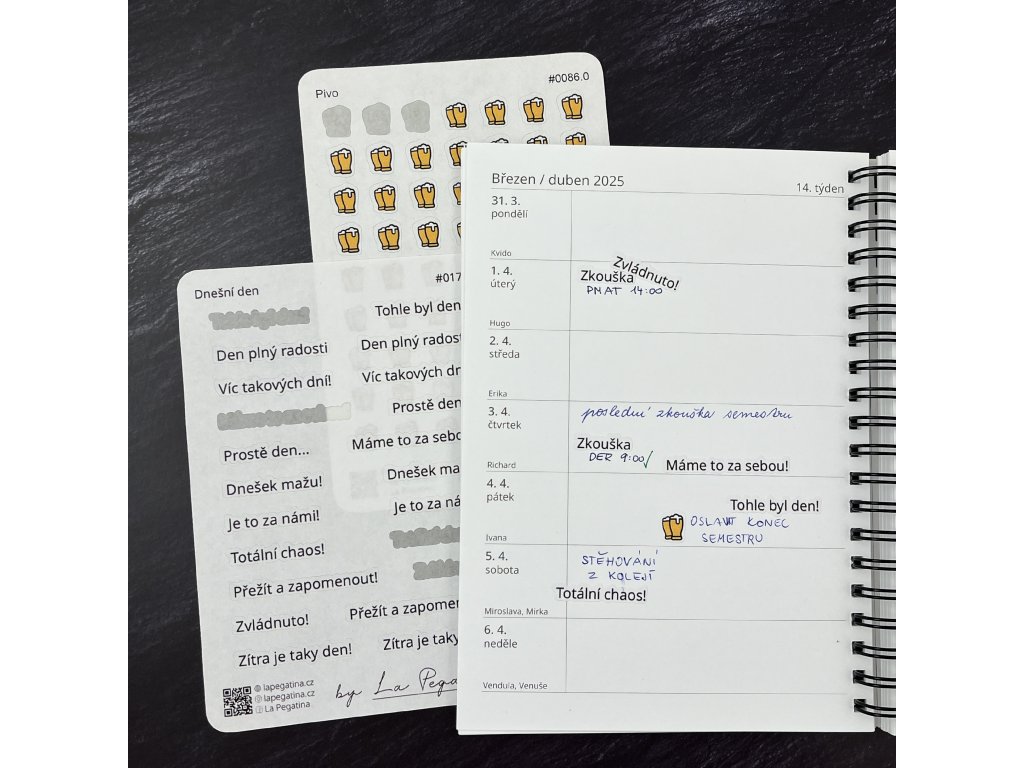 Pivo
#0086.0
Dnešní den
#017
Tohle byl den
Den plný radosti
Den plný radost
Víc takových dní!
Víc takových dn
Prostě den
Prostě den...
Máme to za sebo
Dnešek mažu!
Dnešek ma
Je to za námi!
Je to za ná
Totální chaos!
Přežít a zapomenout!
Zvládnuto!
Přežít a zapomen
Zítra je taky den!
Zítra je taky
lapegatina.cz
lapegatina.cz
La Pegatina
by La Pega
Březen / duben 2025
14. týden
31. 3.
pondělí
Kvido
1. 4.
úterý
Zvládnuto!
Zkouška
PMAT 14:00
Hugo
2. 4.
středa
Erika
3. 4.
čtvrtek
poslední zkouška semestru
Zkouška
DER 9:00 ✓
Máme to za sebou!
Richard
4. 4.
pátek
Tohle byl den!
OSLAVIT KONEC
SEMESTRU
Ivana
5. 4.
sobota
STĚHOVÁNÍ
Z KOLEJÍ
Totální chaos!
Miroslava, Mirka
6. 4.
neděle
Vendula, Venuše